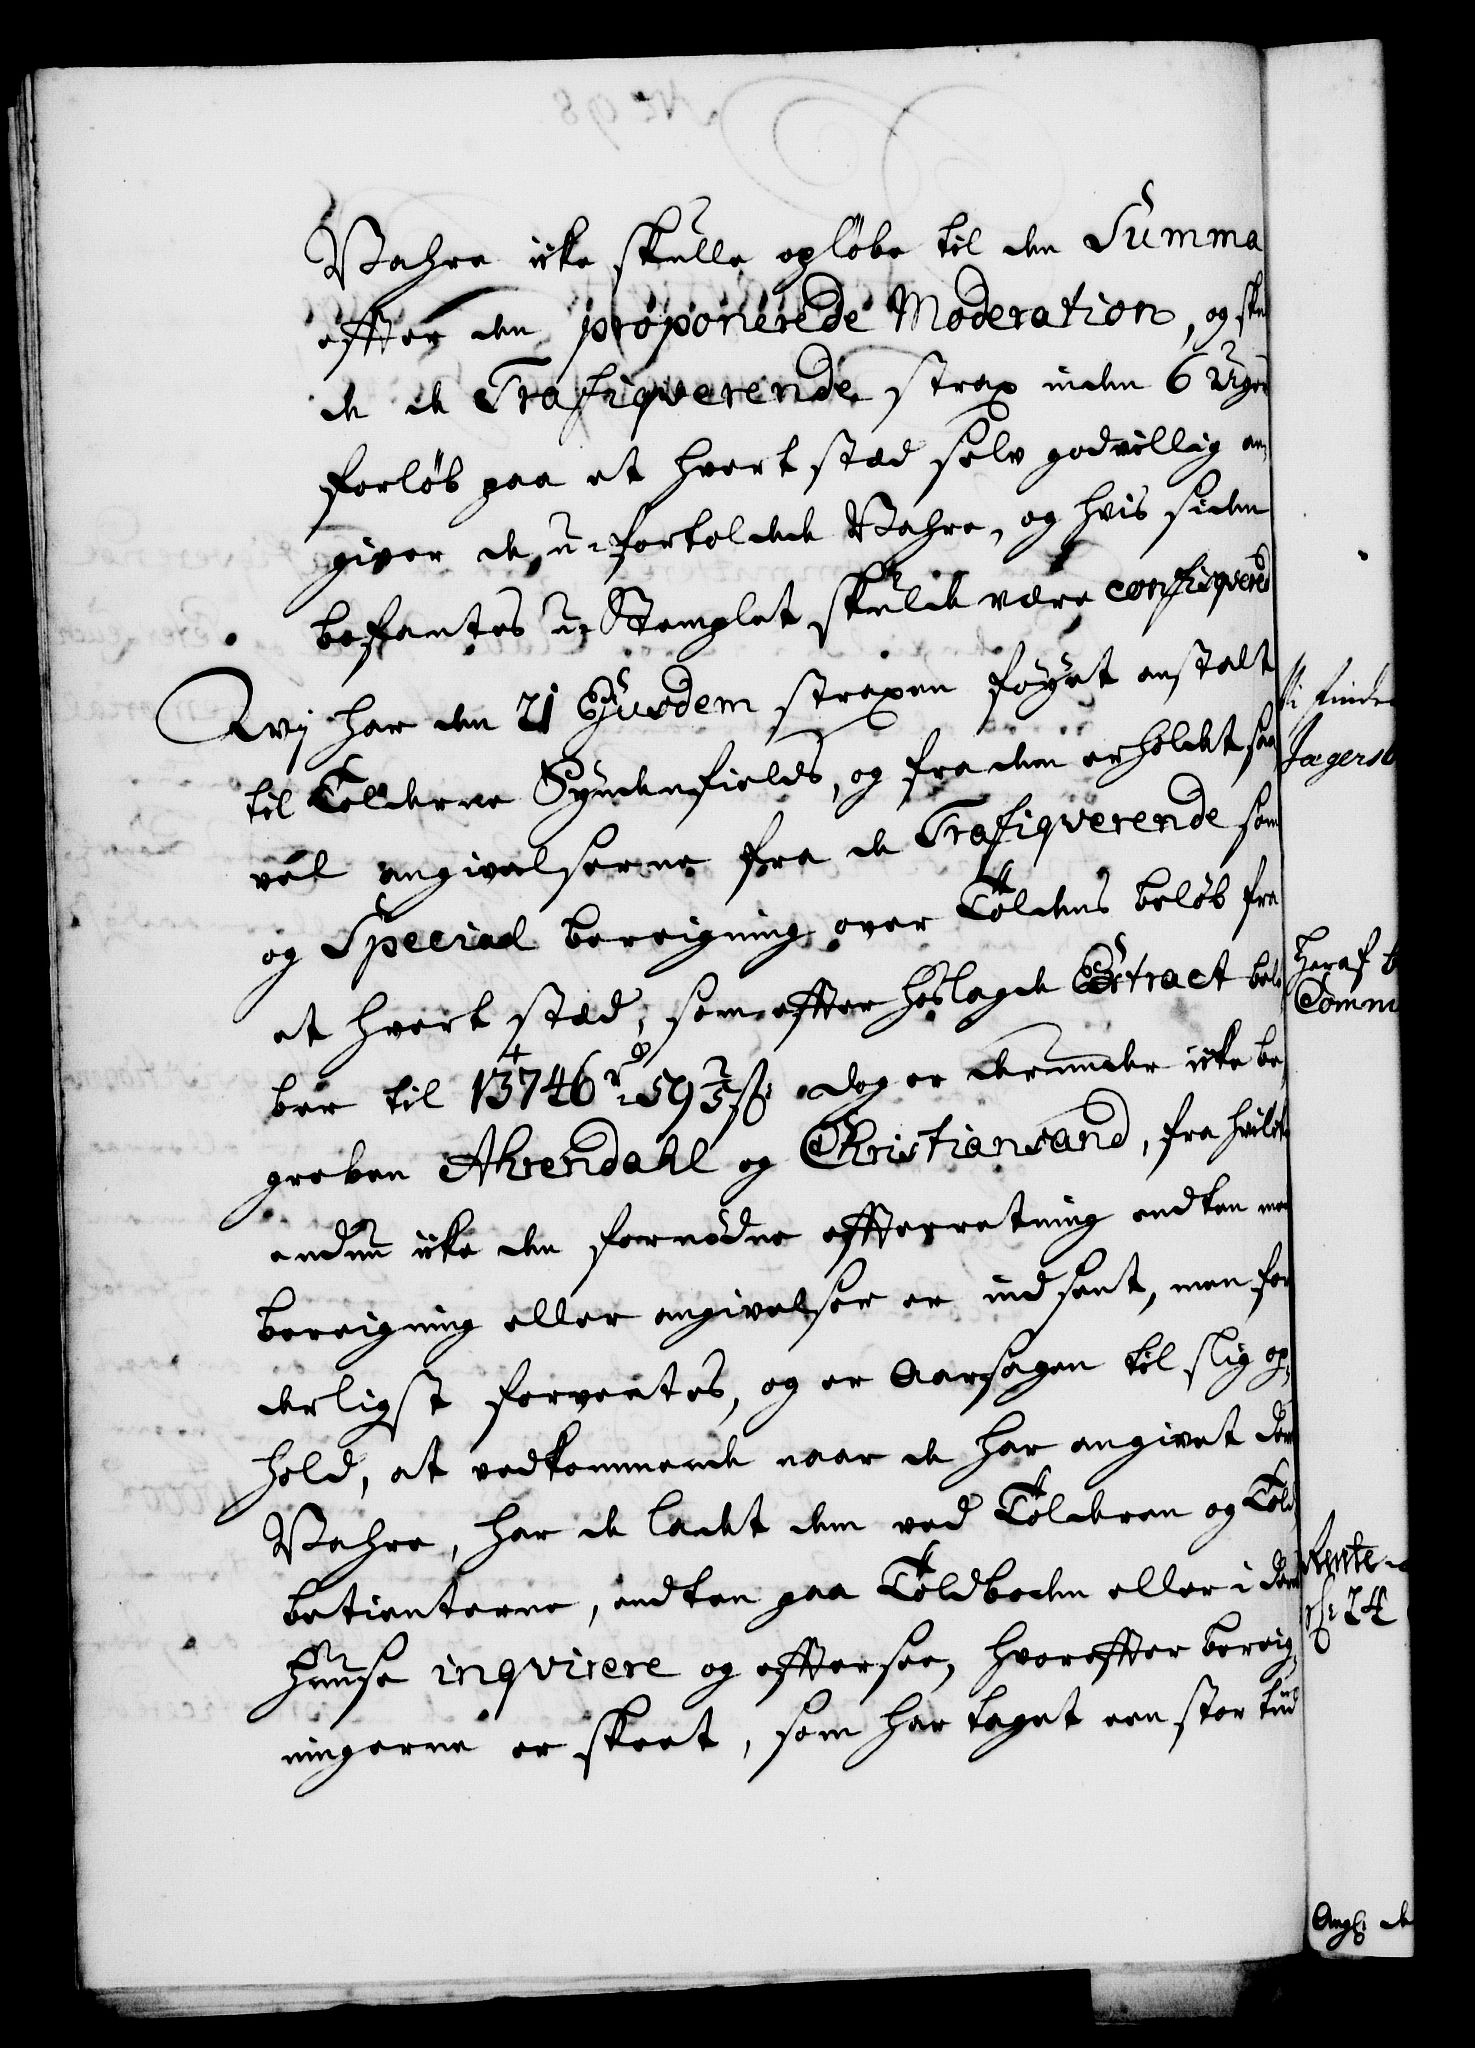 Vahre icke skulle opløbe til den Summa
effter den proponerede Moderation, og skul
de de Trafiqverende strax inden 6 Uger
forløb paa et hvert stæd selv godvillig an,
giver de u-fortoldede Vahre, og hvis siden
befantes u-Stemplet skulde være confisqvered
Wij har den 21 Ejusdem straxen føÿet anstalt
til Tolderne Syndenfields, og fra dem erholdet saa
vel angivelserne fra de Trafiqverende som
og Special bereigning over Toldens beløb fra
et hvert stæd, som effter hoslagde Extract belø,
ber til 13746 rd 59 2/5 ß dog er derunder icke be,
greben Ahrendahl og Christiansand, fra hvilke
endnu icke den fornødne effterretning endten med
bereigning eller angivelser er indsent, men for
derligst forventes, og er Aarsagen til slig op,
hold, at vedkommende naar de har angivet der
Vahre, har de ladet dem ved Tolderen og Told
betienterne, endten paa Toldboden eller i der
Huuse inqvirere og effterse, hvoreffter bereig,
ningerne er skeet, som har taget een stor tiid
Vi finde
Jægersb
Heraf b
Comm
Rente-
24